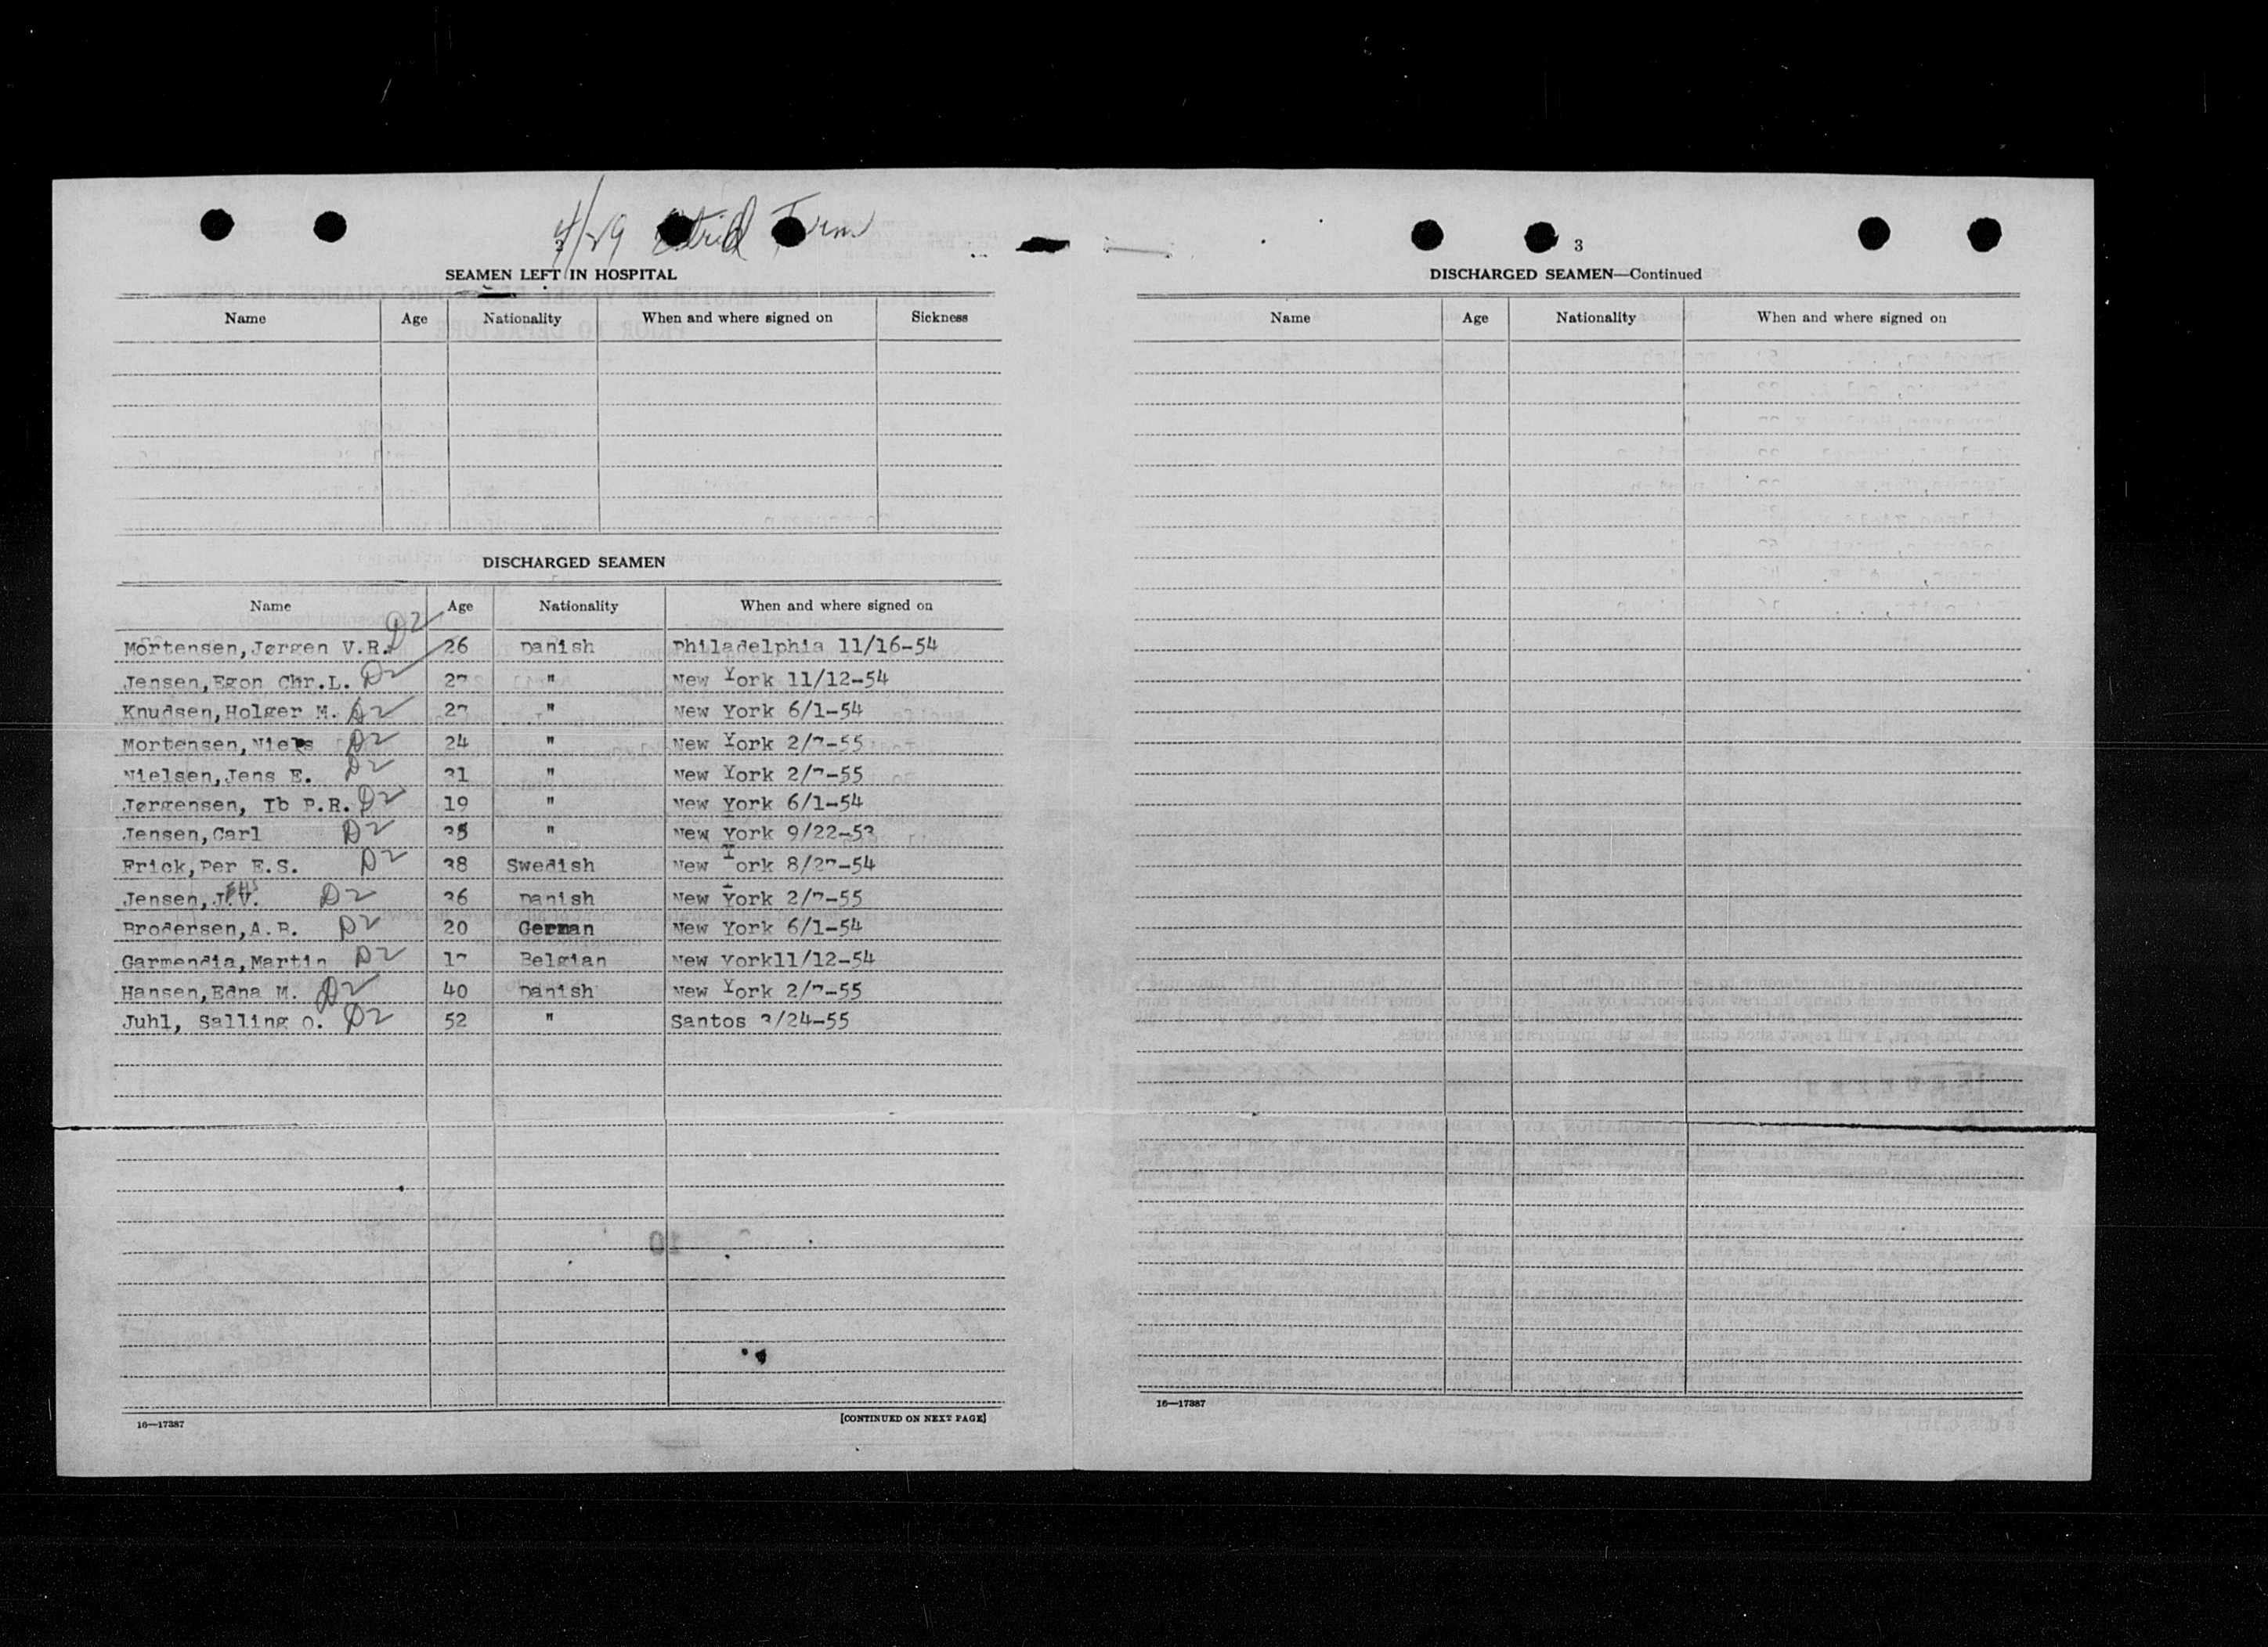 4/29 Astrid Torm
2
SEAMEN LEFT IN HOSPITAL
Name Age Nationality When and where signed on Sickness
DISCHARGED SEAMEN
Name Age Nationality When and where signed on
Mortensen,Jørgen V.R. D2 26 Danish Philadelphia 11/16-54
Jensen,Egon Chr.L. D2 27 " New York 11/12-54
Knudsen,Holger M. D2 27 " New York 6/1-54
Mortensen,Niels D2 24 " New York 2/7-55
Nielsen,Jens E. D2 31 " New York 2/7-55
Jørgensen, Ib P.R. D2 19 " New York 6/1-54
Jensen,Carl D2 35 " New York 9/22-53
Frick,Per E.S. D2 38 Swedish New York 8/27-54
Jensen,J.V. D2 36 Danish New York 2/7-55
Brodersen,A.B. D2 20 German New York 6/1-54
Garmendia,Martin D2 17 Belgian New York11/12-54
Hansen,Edna M. D2 40 Danish New York 2/7-55
Juhl, Salling O. D2 52 " Santos 3/24-55
16—17387
[CONTINUED ON NEXT PAGE]
3
DISCHARGED SEAMEN—Continued
Name Age Nationality When and where signed on
16—17387